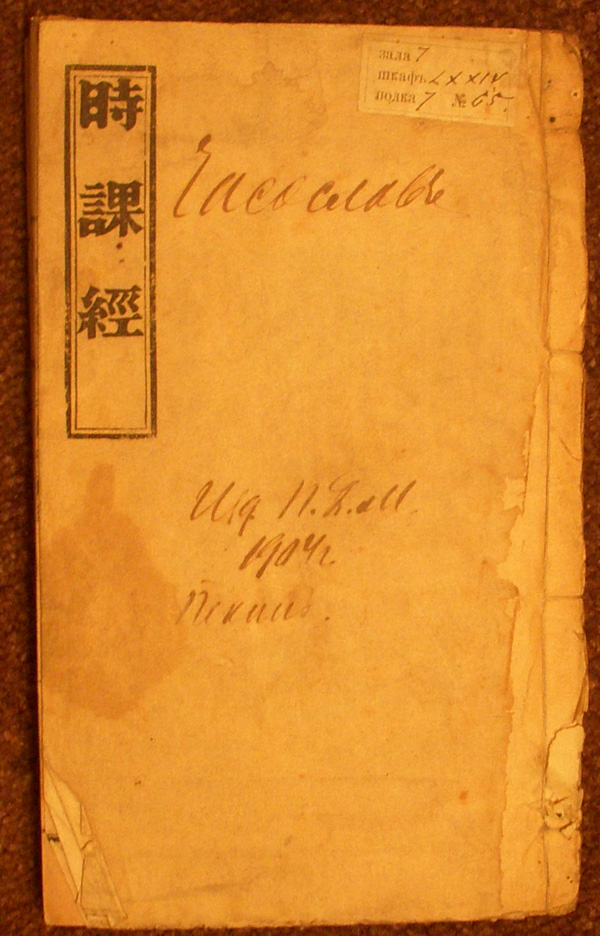 時課經
зала 7
шкафъ LXXIV
полка 7 № 65.
Часословъ
Изд. П. Д. М.
1904 г.
Пекинъ.